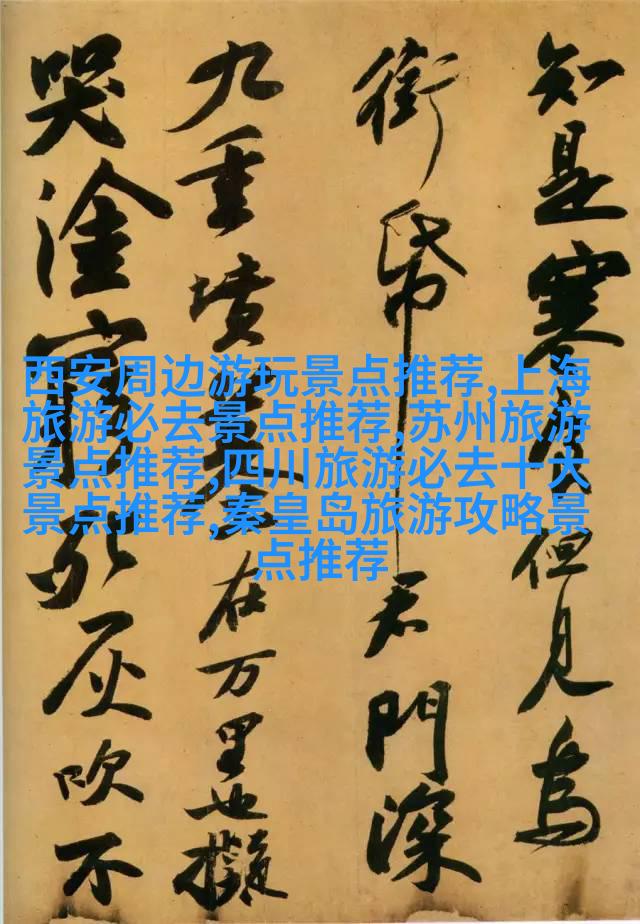 知是寒食但見烏
銜帋君門深
九重墳墓在万里也擬
哭塗窮死灰吹不
西安周边游玩景点推荐,上海
旅游必去景点推荐,苏州旅游
景点推荐,四川旅游必去十大
景点推荐,秦皇岛旅游攻略景
点推荐